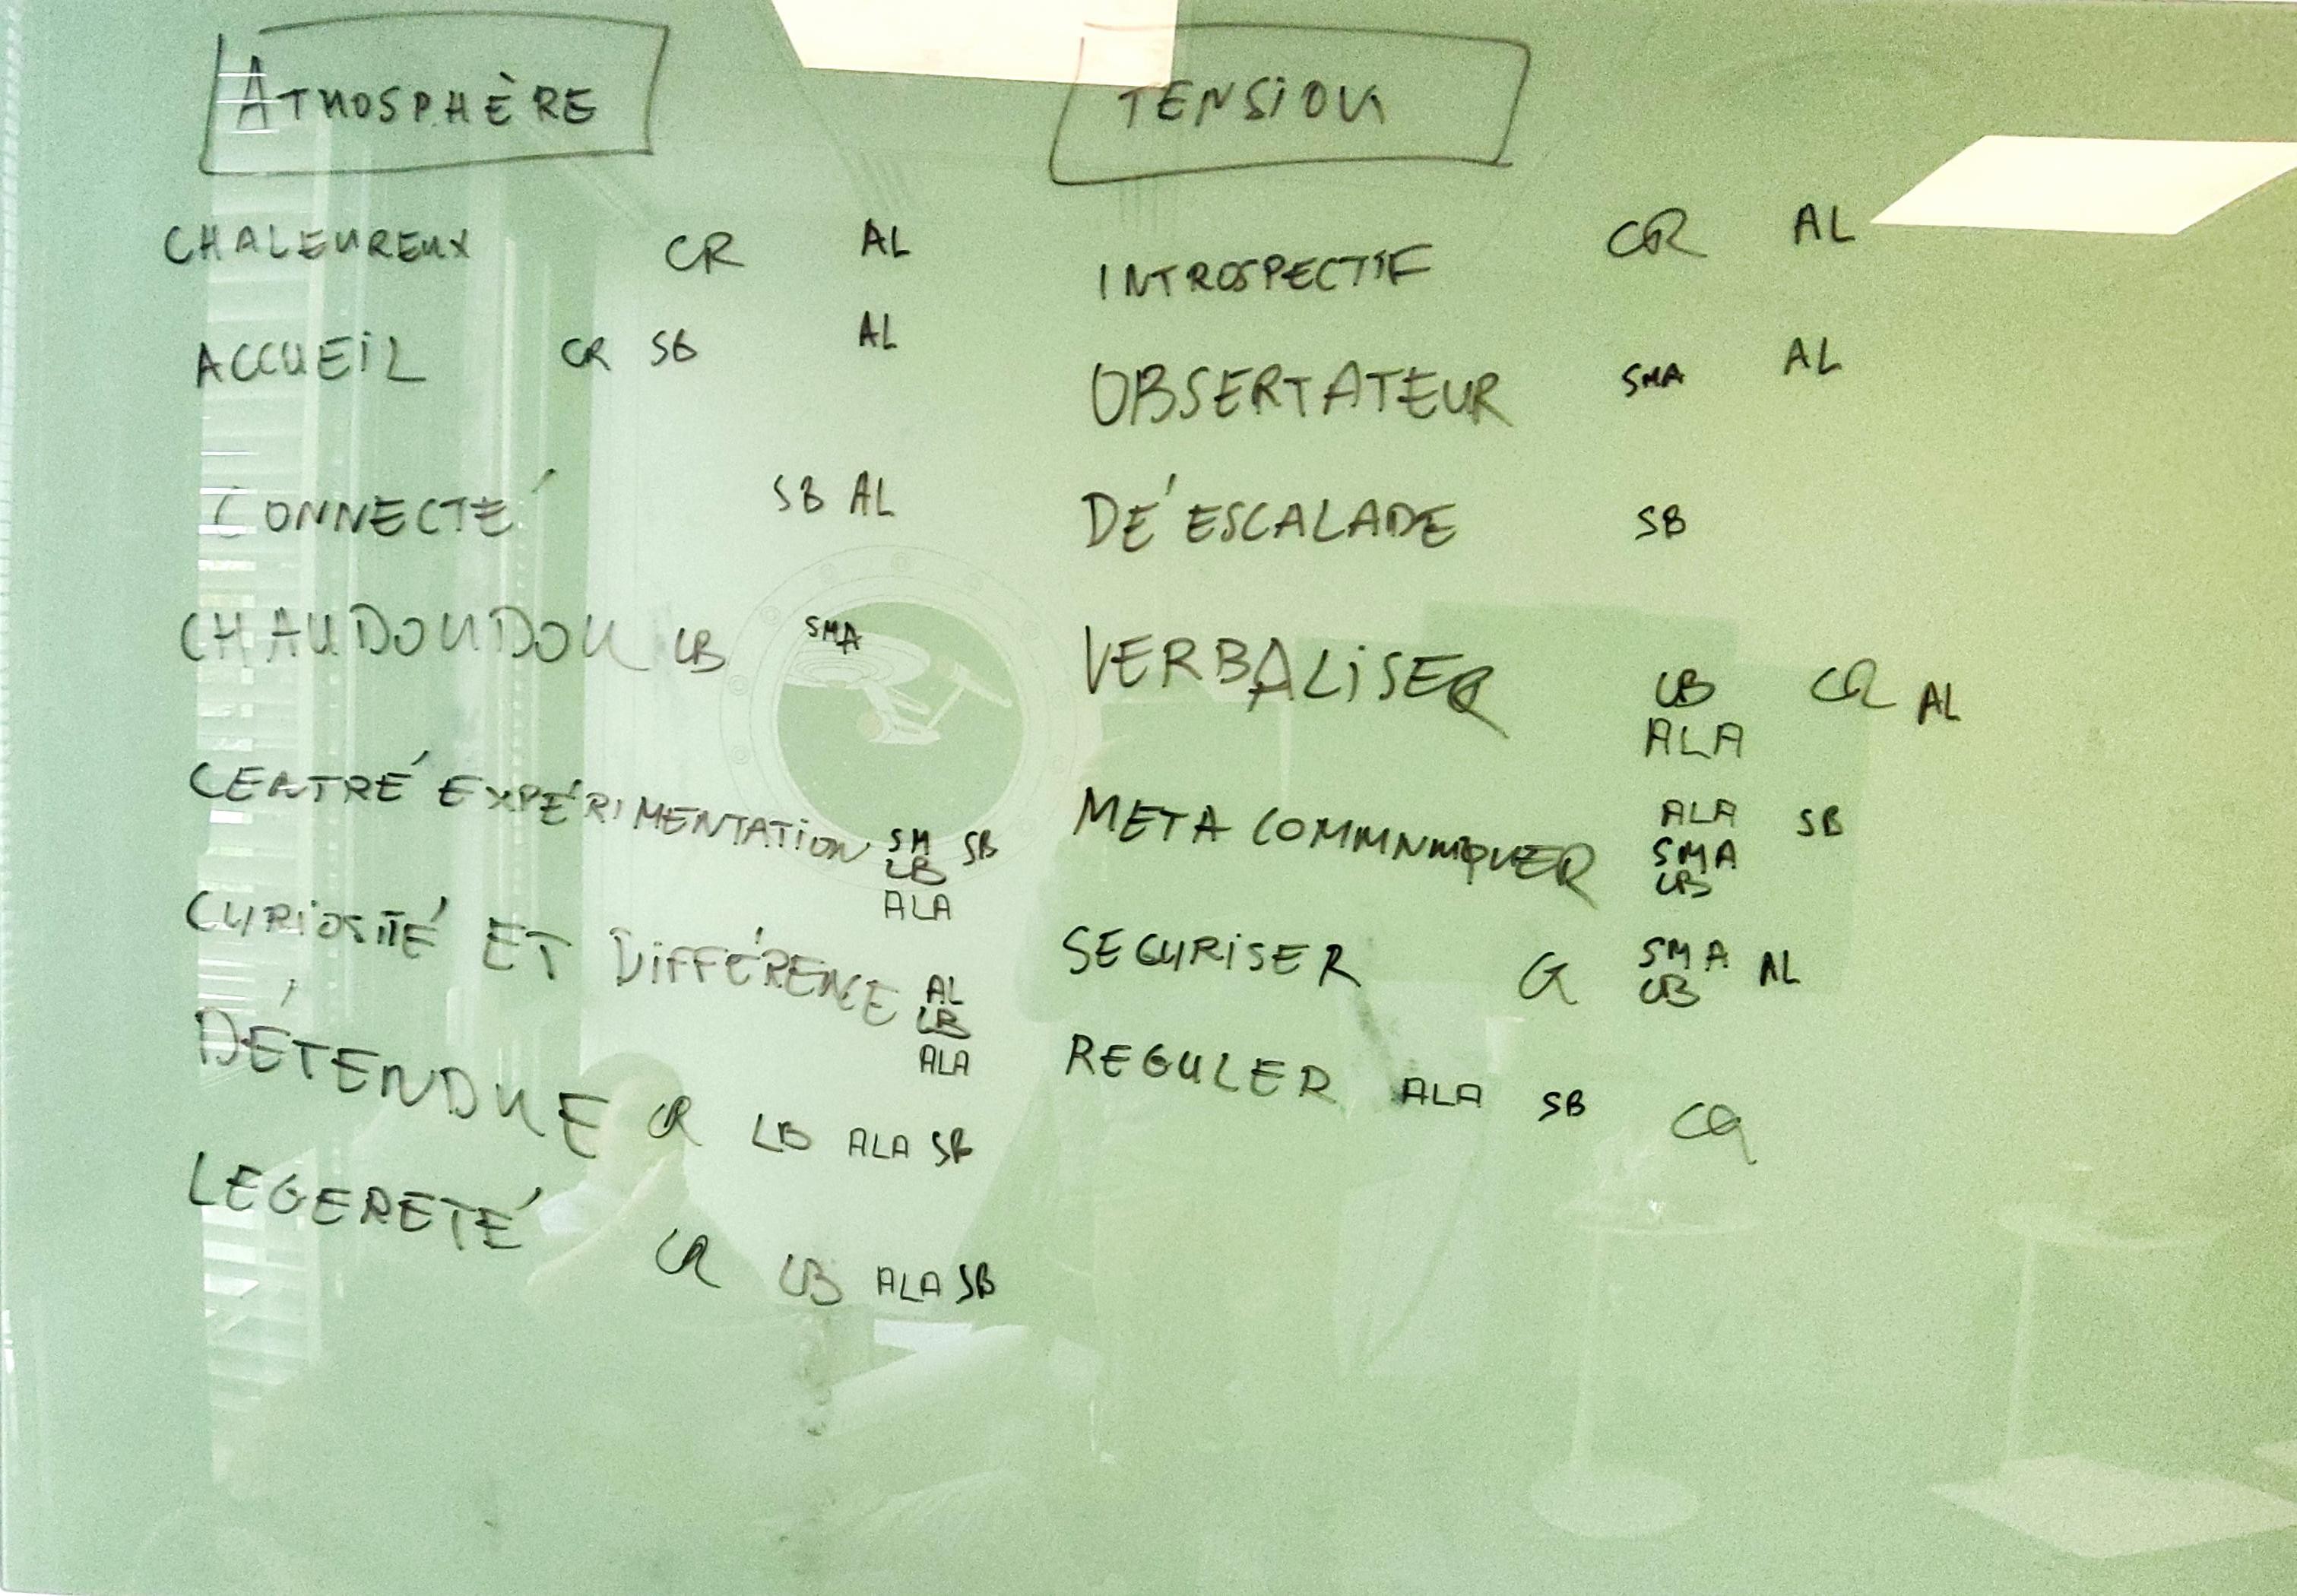 ATMOSPHÈRE
CHALEUREUX CR AL
ACCUEIL CR SB AL
CONNECTÉ SB AL
CHAUDOUDOU LB SMA
CENTRÉ EXPÉRIMENTATION SM SB
LB
ALA
CURIOSITÉ ET DIFFÉRENCE AL
LB
ALA
DÉTENDUE CR LB ALA SB
LEGERETÉ CR LB ALA SB
TENSION
INTROSPECTIF CR AL
OBSERTATEUR SMA AL
DÉ'ESCALADE SB
VERBALISER LB CR AL
ALA
META COMMUNIQUER ALA SB
SMA
LB
SECURISER SMA AL
LB
REGULER ALA SB CR